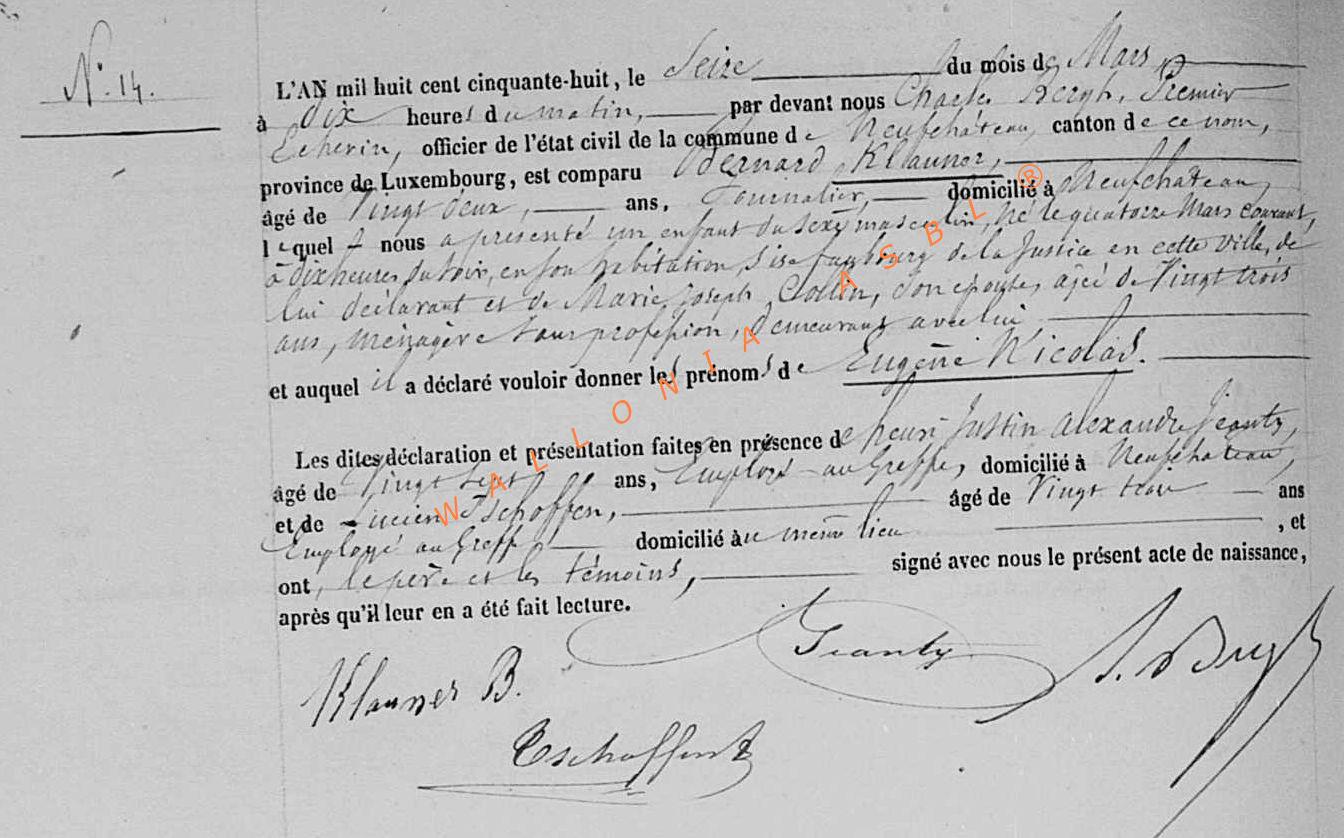 N° 14.
L'AN mil huit cent cinquante-huit, le Seize du mois de Mars
à Dix heures du matin, par devant nous Charles Bergh, Premier
Echevin, officier de l'état civil de la commune de Neufchâteau, canton de ce nom,
province de Luxembourg, est comparu Bernard Klauner,
âgé de Vingt deux, ans, Journalier, domicilié à Neufchateau,
lequel nous a présenté un enfant du sexe masculin, né le quatorze Mars courant,
à dix heures du soir, en son habitation, sise faubourg de la Justice en cette ville, de
lui déclarant et de Marie Joseph Collin, son épouse, agée de Vingt trois
ans, ménagère sans profession, demeurant avec lui
et auquel il a déclaré vouloir donner les prénoms de Eugène Nicolas.
Les dites déclaration et présentation faites en présence de henri Justin Alexandre Jeanty,
âgé de Vingt sept ans, Employé au Greffe, domicilié à Neufchateau,
et de Lucien Tschoffen, âgé de Vingt trois ans
Employé au Greffe domicilié au même lieu , et
ont, le père et les témoins, signé avec nous le présent acte de naissance,
après qu'il leur en a été fait lecture.
Jeanty
Klauner B.
Tschoffen
WALLONIA ASBL ®